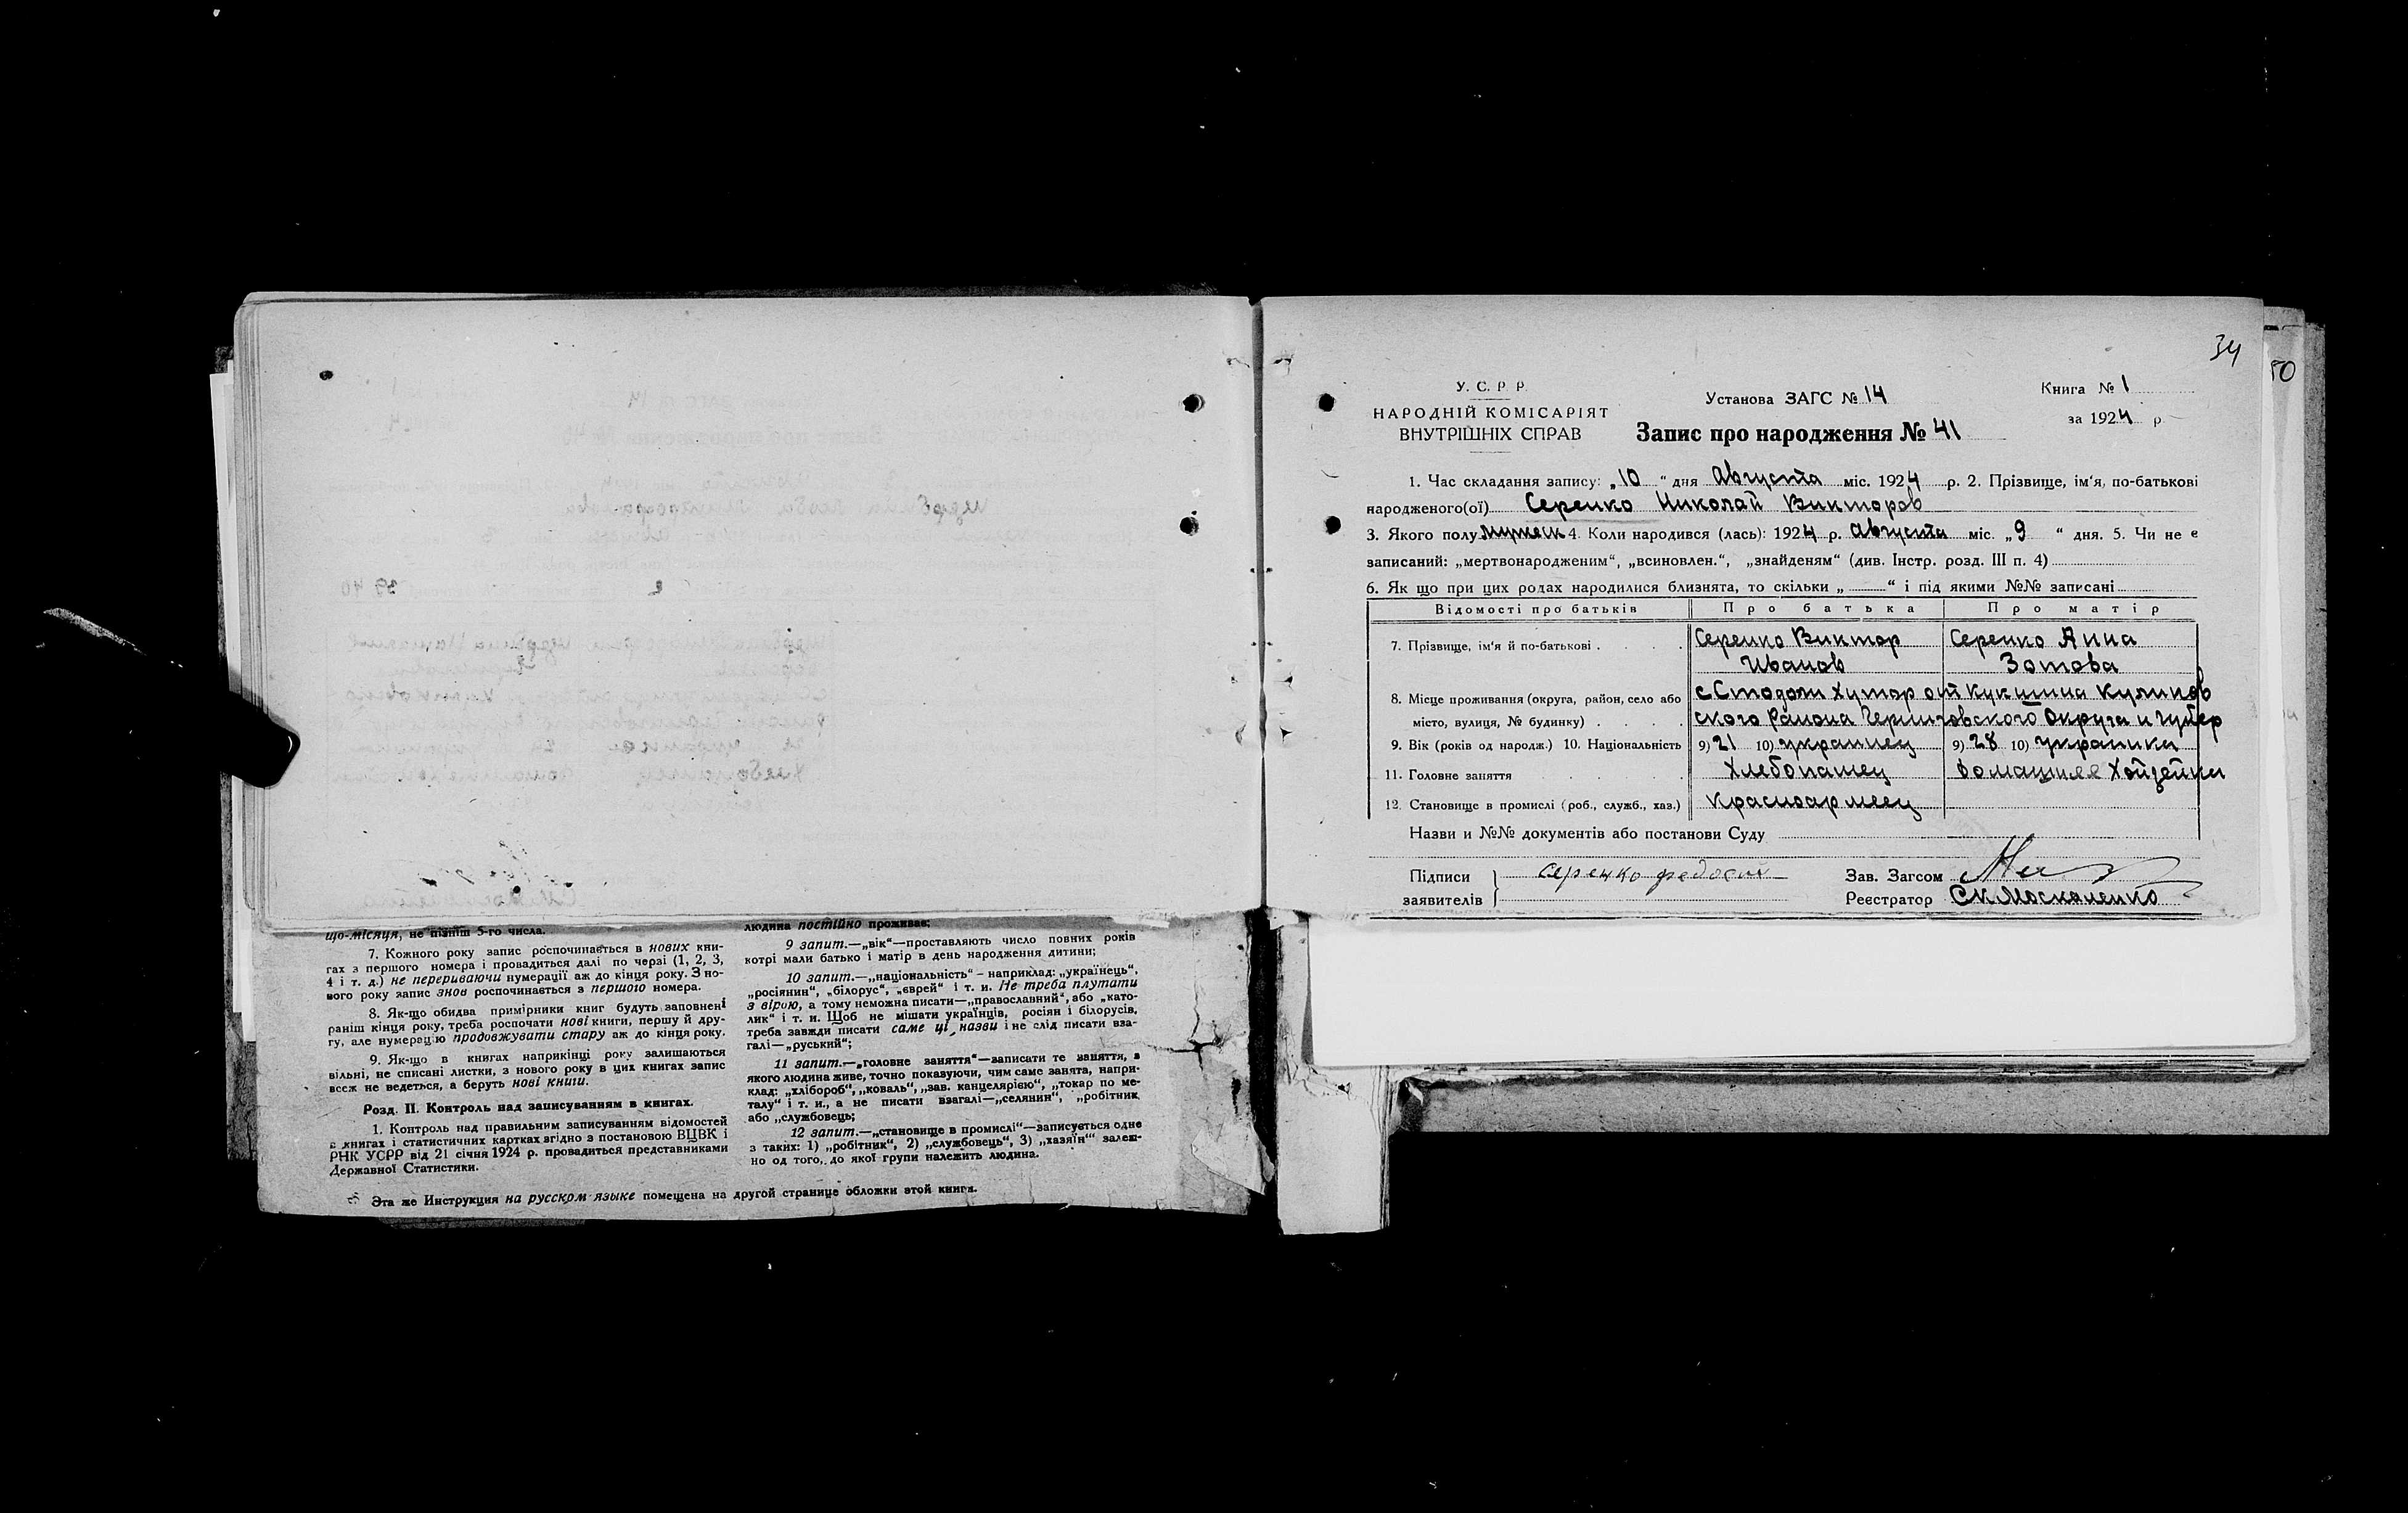 що-місяця, не пізніш 5-го числа.
7. Кожного року запис розпочинається в нових кни-
гах з першого номера і провадиться далі по черзі (1, 2, 3,
4 і т. д.) не перериваючи нумерації аж до кінця року. З но-
вого року запис знов розпочинається з першого номера.
8. Як-що обидва примірники книг будуть заповнені
раніш кінця року, треба розпочати нові книги, першу й дру-
гу, але нумерацію продовжувати стару аж до кінця року.
9. Як-що в книгах наприкінці року залишаються
вільні, не списані листки, з нового року в цих книгах запис
все ж не ведеться, а беруть нові книги.
Розд. II. Контроль над записуванням в книгах.
1. Контроль над правильним записуванням відомостей
в книгах і статистичних картках згідно з постановою ВЦВК і
РНК УСРР від 21 січня 1924 р. провадиться представниками
Державної Статистики.
людина постійно проживає;
9 запит.—„вік“—проставляють число повних років
котрі мали батько і матір в день народження дитини;
10 запит.—„національність“ – наприклад: „українець“,
„росіянин“, „білорус“, „єврей“ і т. и. Не треба плутати
з вірою, а тому неможна писати—„православний“, або „като-
лик“ і т. и. Щоб не мішати українців, росіян і білорусів,
треба завжди писати саме ці назви і не слід писати вза-
галі—„руський“;
11 запит.—„головне заняття“—записати те заняття, з
якого людина живе, точно показуючи, чим саме занята, напри-
клад: „хлібороб“, „коваль“, „зав. канцелярією“, „токар по ме-
талу“ і т. и., а не писати взагалі—„селянин“, „робітник
або „службовець;
12 запит.—„становище в промислі“—записується одне
з таких: 1) „робітник“, 2) „службовець“, 3) „хазяїн“ залеж-
но од того, до якої групи належить людина.
Эта же Инструкция на русском языке помещена на другой странице обложки этой книги.
34
50
У. С. Р. Р.
НАРОДНІЙ КОМІСАРІЯТ
ВНУТРІШНІХ СПРАВ
Установа ЗАГС № 14
Запис про народження № 41
Книга № 1
за 1924 р.
1. Час складання запису: „10“ дня Августа міс. 1924 р. 2. Прізвище, ім'я, по-батькові
народженого(ої) Серенко Николай Викторов
3. Якого полу мужеск 4. Коли народився (лась): 1924 р. Августа міс. „9“ дня. 5. Чи не є
записаний: „мертвонародженим“, „всиновлен.“, „знайденям“ (див. Інстр. розд. III п. 4)
6. Як що при цих родах народилися близнята, то скільки „ “ і під якими №№ записані
Відомості про батьків Про батька Про матір
7. Прізвище, ім'я й по-батькові Серенко Виктор Серенко Анна
Иванов Зотова
8. Місце проживання (округа, район, село або с Стодоли Хутор от Кукшина Куликов
місто, вулиця, № будинку) ского Района Черниговского Округа и губер
9. Вік (років од народж.) 10. Національність 9) 21 10) украинец 9) 28 10) украинка
11. Головне заняття Хлебопашец домашнее Хойзейки
12. Становище в промислі (роб., служб., хаз.) Красноармеец
Назви и №№ документів або постанови Суду
Підписи Серенко Зав. Загсом
заявителів Реєстратор СкМоскаленко